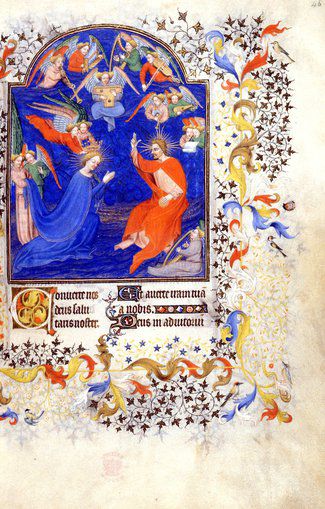 46
Conuerte nos
deus salu
taris noster.
Et auerte iram tuā
a nobis.
Deus in adiutori